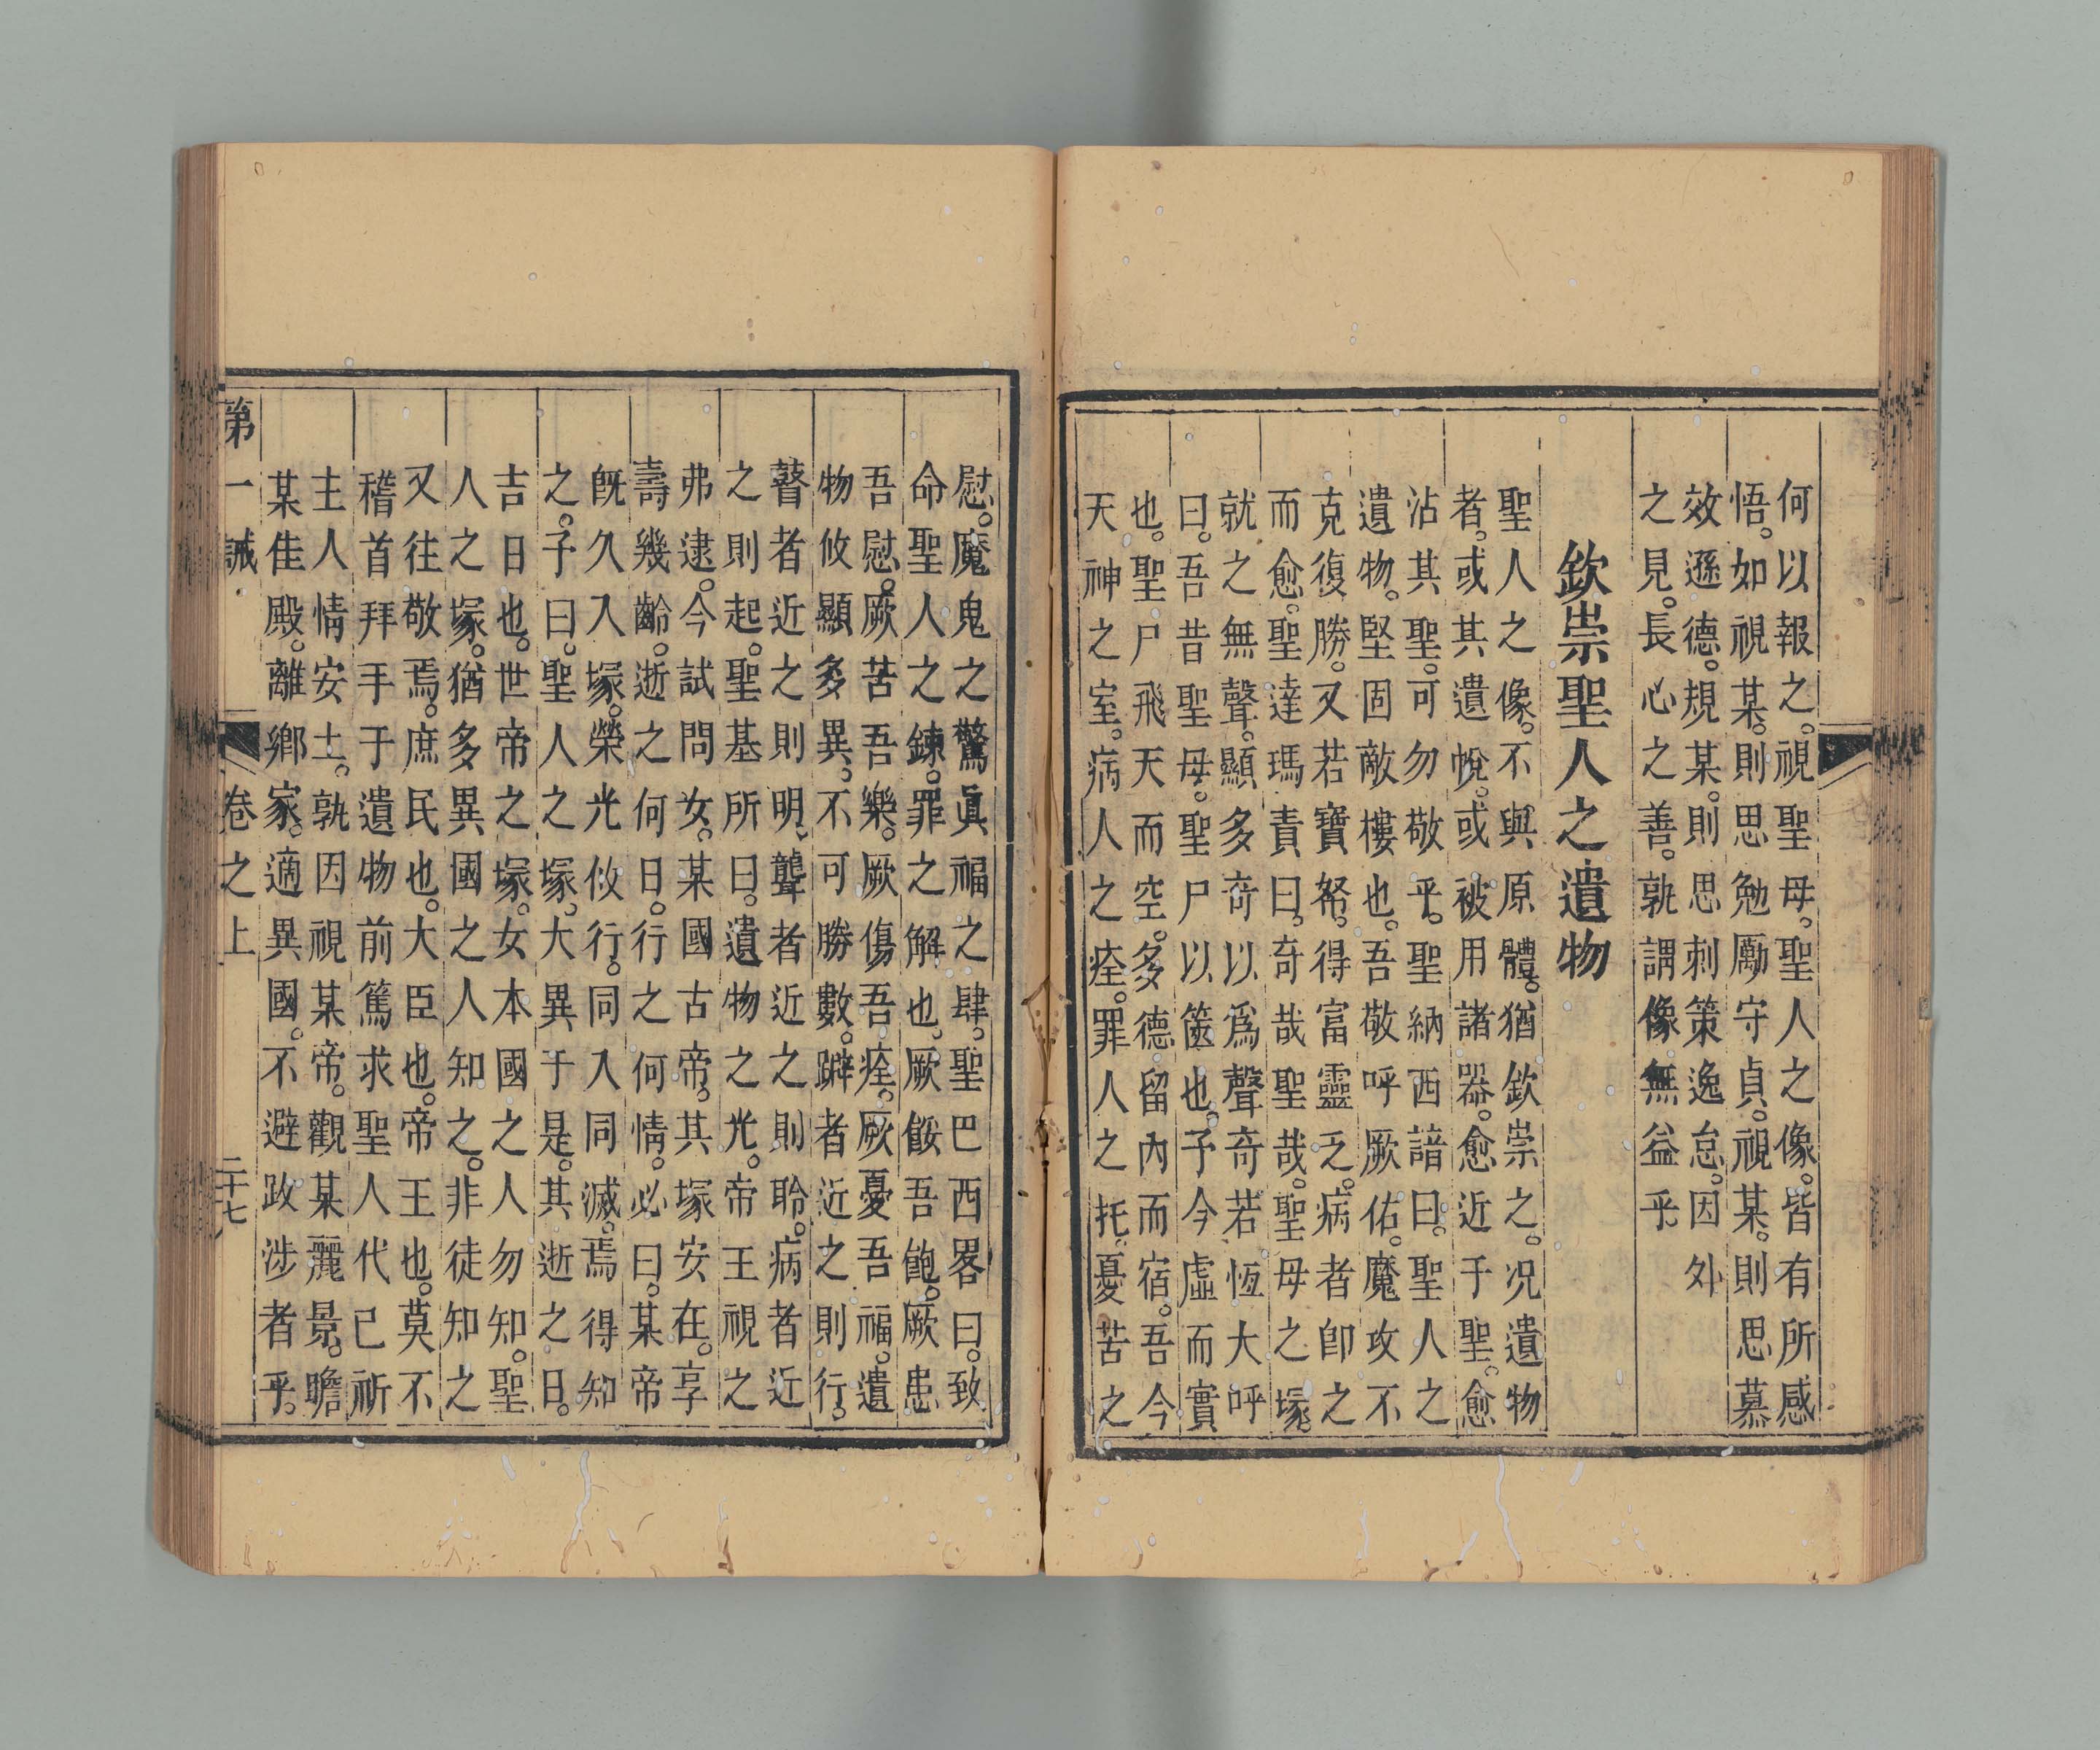 何以報之。視聖母。聖人之像。皆有所感
悟。如視某。則思勉勵守貞。視某。則思慕
效遜德。規某。則思刺策逸怠。因外
之見。長心之善。孰謂像無益乎
欽崇聖人之遺物
聖人之像。不與原體。猶欽崇之。況遺物
者。或其遺帨。或被用諸器。愈近于聖。愈
沾其聖。可勿敬乎。聖納西諳曰。聖人之
遺物。堅固敵樓也。吾敬呼厥佑。魔攻不
克復勝。又若寶帑。得富靈乏。病者卽之
而愈。聖達瑪責曰。奇哉聖哉。聖母之塚。
就之無聲。顯多奇以爲聲奇若恆大呼
曰。吾昔聖母。聖尸以篋也。予今虛而實
也。聖尸飛天而空。多德留內而宿。吾今
天神之室。病人之痊。罪人之托。憂苦之
慰。魔鬼之驚眞福之肆。聖巴西畧曰。致
命聖人之鍊。罪之解也。厥餒吾飽。厥患
吾慰。厥苦吾樂。厥傷吾痊。厥憂吾福。遺
物攸顯多異。不可勝數。躃者近之則行。
瞽者近之則明、聾者近之則聆。病者近
之則起。聖基所曰。遺物之光。帝王視之
弗逮。今試問女。某國古帝。其塚安在。享
壽幾齡。逝之何日。行之何情。必曰。某帝
旣久入塚。榮光攸行。同入同滅。焉得知
之。予曰。聖人之塚。大異于是。其逝之日。
吉日也。世帝之塚。女本國之人勿知。聖
人之塚。猶多異國之人知之。非徒知之
又往敬焉。庶民也。大臣也。帝王也。莫不
稽首拜手于遺物前篤求聖人代己祈
主人情安土。孰因視某帝。觀某麗景。瞻
某佳殿。離鄉家。適異國。不避跋涉者乎。
第一誡 卷之上 二十七